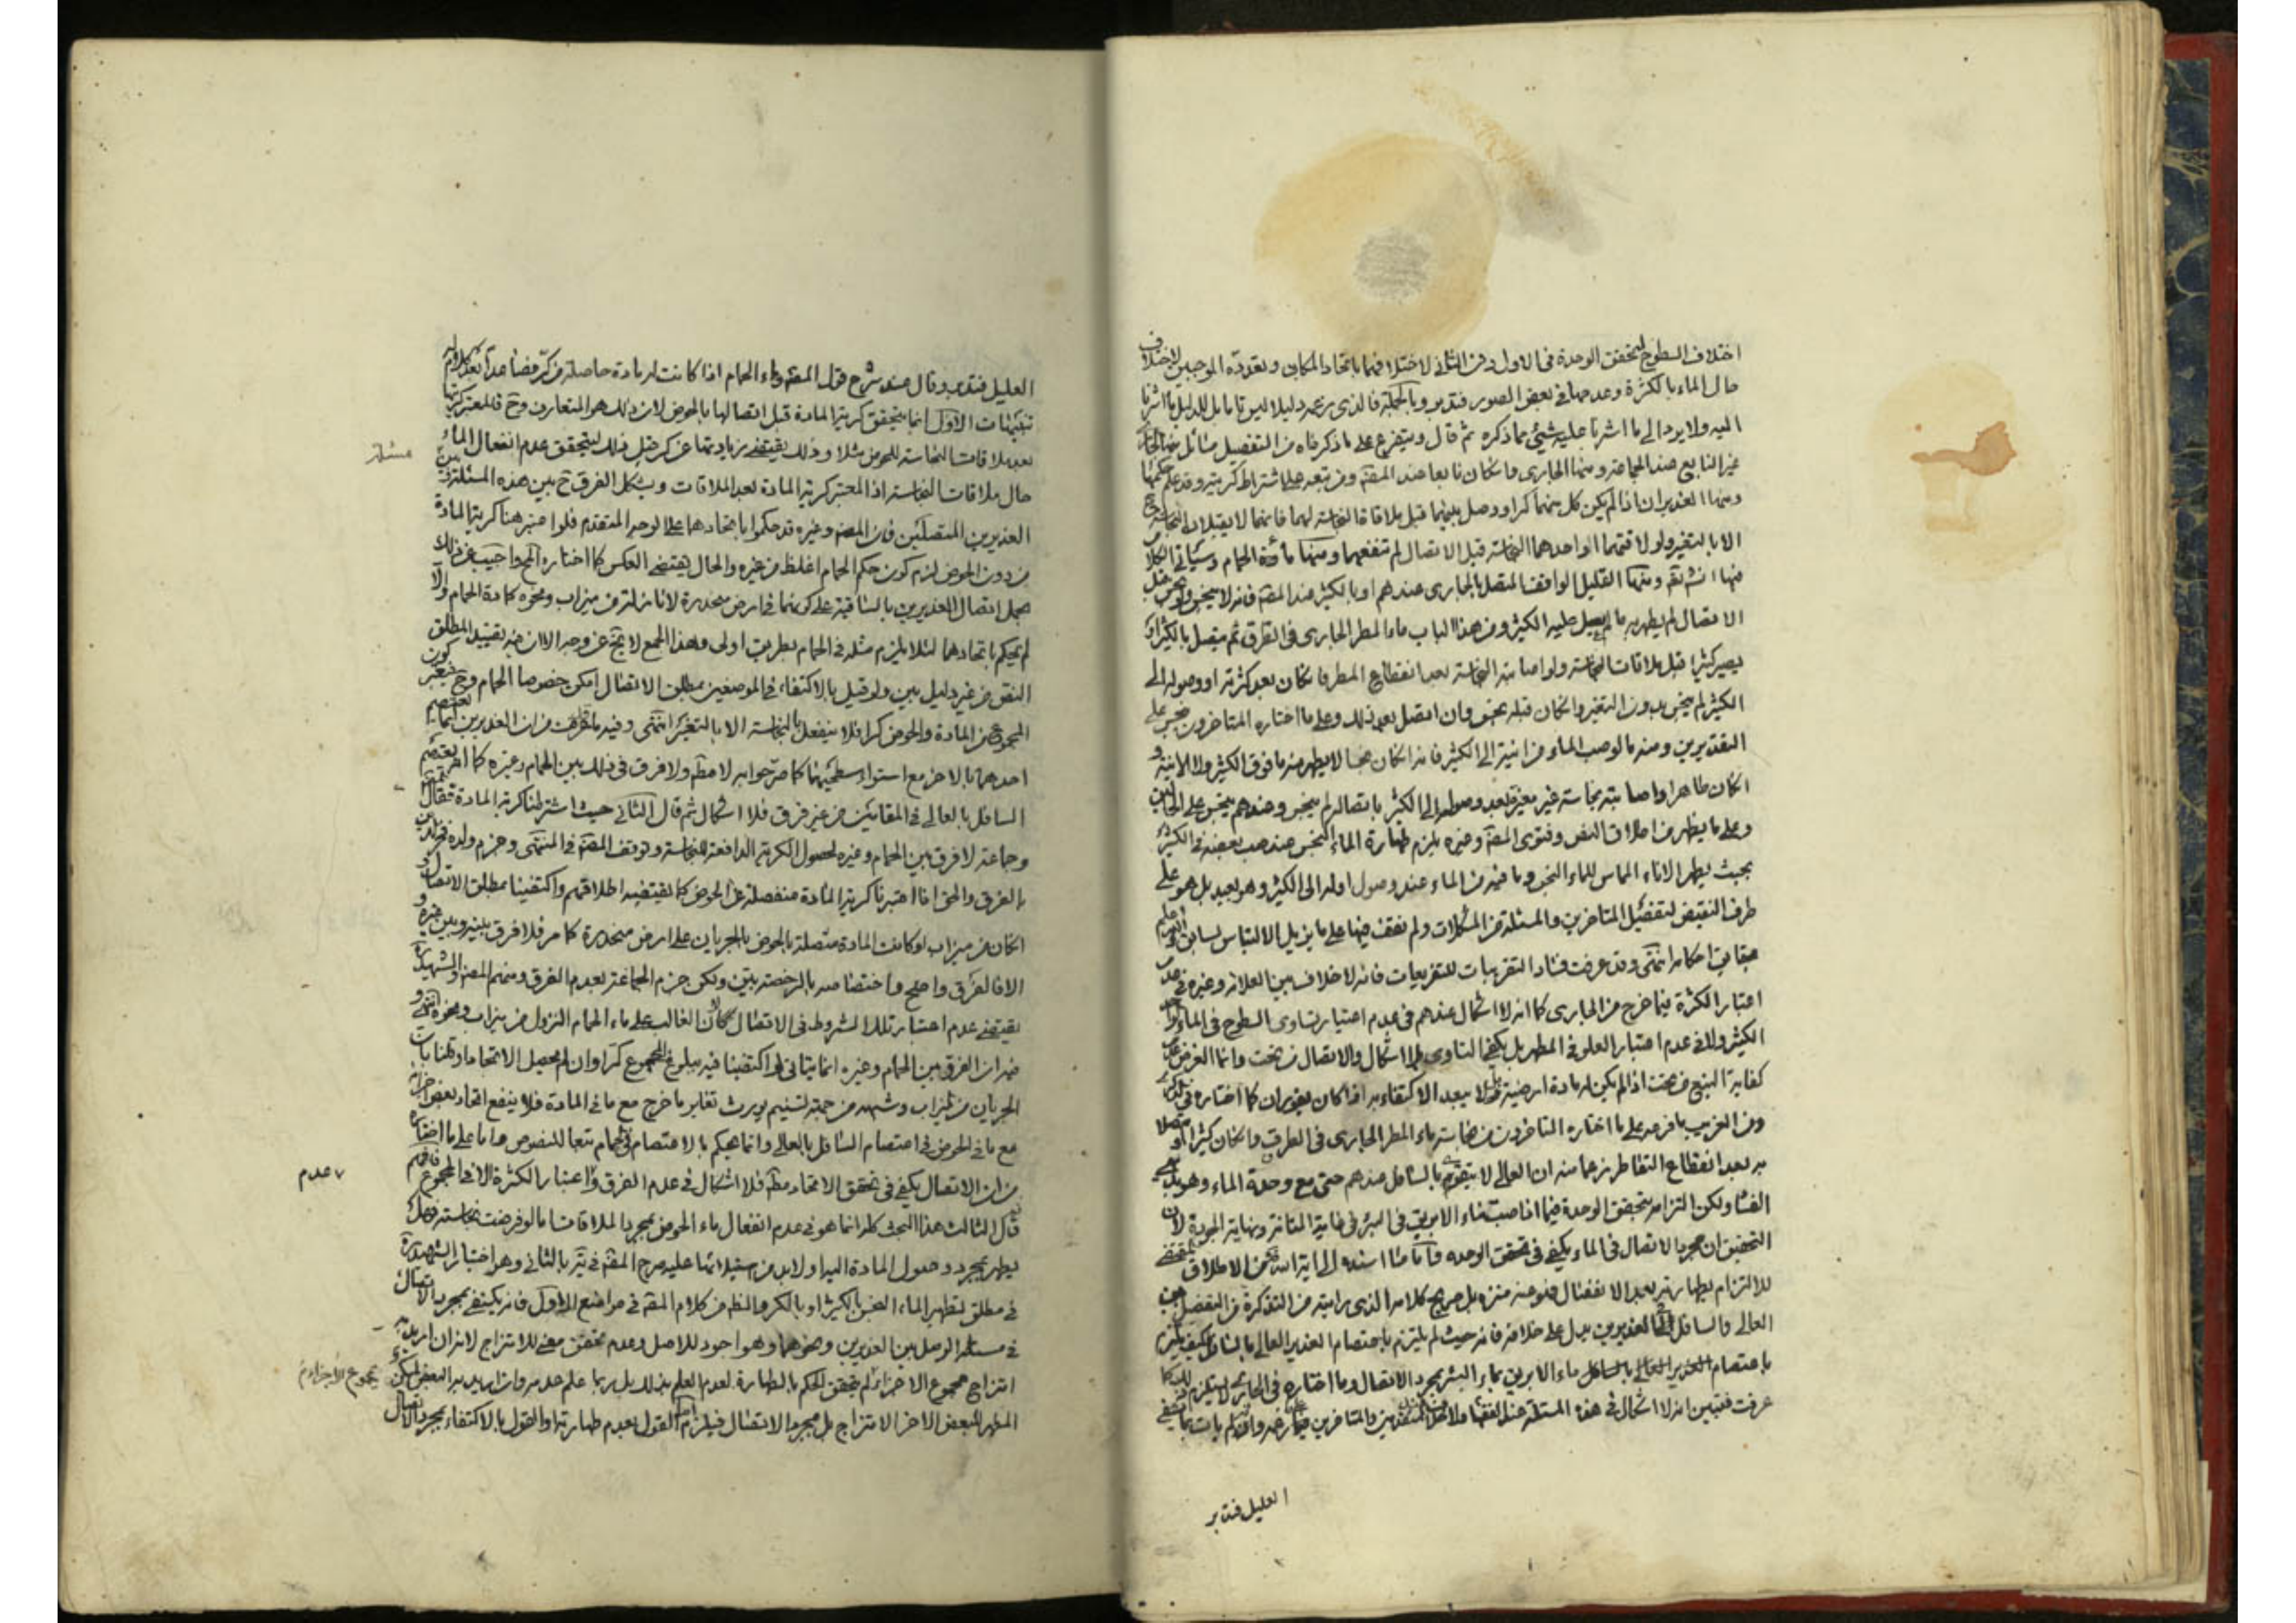 اختلاف السطوح لتحقق الوحدة فى الاول دون الثانى لاختلافهما باتحاد المكان وتعدده الموجبين لاختلاف
حال الماء بالكثرة وعدمها فى بعض الصور فتدبر وبالجملة فالذى زعمه دليلا ليس تاما بل الدليل ما اشرنا
اليه ولا يرد الى ما اشرنا عليه شيئ مما ذكره ثم قال ويتفرع على ما ذكرناه من التفصيل مسائل منها الجارى
غير النابع عند الجماعة ومنها الجارى ما كان نابعا عند المصنف ومن تبعه على اشتراط كريته وقد علم حكمها
ومنها الغديران اذا لم يكن كل منهما كرا ووصل بينهما قبل ملاقاة النجاسة لهما فانهما لا يقبلان النجاسة ح
الا بالتغير ولو لاقتهما او احدهما النجاسة قبل الاتصال لم تنفعهما ومنها مادة الحمام وسيأتى الكلام
فيها انش تعم ومنها القليل الواقف المتصل بالجارى عندهم او بالكثير عند المصنف فانه لا ينجس ولو نجس قبل
الاتصال لم يطهر به ما لم يسل عليه الكثير ومن هذا الباب ماء المطر الجارى فى الطرق ثم يتصل بالكثير او
يصير كثيرا قبل ملاقات النجاسة ولو اصابته النجاسة بعد انقطاع المطر فان كان بعد كثرته او وصوله الى
الكثير لم ينجس بدون التغير وان كان قبله نجس وان اتصل بعد ذلك وعلى ما اختاره المتاخرون نجس على
التقديرين ومنه ما لو صب الماء من انية الى الكثير فانه ان كان نجسا لا يطهر منه ما فوق الكثير ولا الانية و
ان كان طاهرا واصابته نجاسة غير مغيرة بعد وصوله الى الكثير باتصاله لم ينجس وعندهم ينجس على الحالين
وعلى ما يظهر من اطلاق النص وفتوى المصنف وغيره يلزم طهارة الماء النجس عند صب بعضه فى الكثير
بحيث يطهر الاناء المماس للماء النجس وما فيه من الماء عند وصول اوله الى الكثير وهو بعيد بل هو على
طرف النقيض لتفصيل المتاخرين والمسئلة من المشكلات ولم نقف فيها على ما يزيل الالتباس لسابق والله اعلم
بحقايق احكامه انتهى وقد عرفت فساد التقريبات للتفريعات فانه لا خلاف بين العلامة وغيره فى عدم
اعتبار الكثرة فيما خرج من الجارى كما انه لا اشكال عندهم فى عدم اعتبار تساوى السطوح فى الماء
الكثير ولا فى عدم اعتبار العلو فى المطهر بل يكفى التساوى بلا اشكال والاتصال من تحت وانما الغرض عدم
كفاية النبع من تحت اذا لم يكن له مادة ارضية بل لا يبعد الاكتفاء به اذا كان بفوران كما اختاره فى الذكرى
ومن الغريب ما فرعه على ما اختاره المتاخرون من نجاسة ماء المطر الجارى فى الطرق وان كان كثيرا او متصلا
به بعد انقطاع التقاطر زعما منه ان العالى لا يتقوى بالسافل عندهم حتى مع وحدة الماء وهو
الفساد ولكن التزامه بتحقق الوحدة فيما اذا صب ماء الابريق فى البئر فى غاية المتانة ونهاية الجودة لان
التحقيق ان مجرد الاتصال فى الماء يكفى فى تحقق الوحدة
للالتزام بطهارته بعد الانفصال فنوعنه منزه بل صريح كلامه الذى رايته من التذكرة من التفصيل بين
العالى والسافل فى الغديرين يدل على خلافه فانه حيث لم يلتزم باعتصام الغدير العالى بالسافل كيف يلتزم
باعتصام ماء الابريق بماء البئر بمجرد الاتصال وما اختاره فى الجارى لا يستلزم ذلك كما
عرفت فتبين انه لا اشكال فى هذه المسئلة عند الفقهاء
العليل فتدبر
العليل فتدبر وقال عند شرح قول المصنف وماء الحمام اذا كانت له مادة حاصلة من كر فصاعدا بعد كلام له
تنبيهات الاول انما يتحقق كرية المادة قبل اتصالها بالحوض لان ذلك هو المتعارف وح فالمعتبر كريتها
بعد ملاقات النجاسة للحوض مثلا وذلك يقتضى زيادتها عن كر قبل ذلك ليتحقق عدم انفعال الماء
حال ملاقات النجاسة اذ المعتبر كرية المادة بعد الملاقات ويشكل الفرق ح بين هذه المسئلة وبين
مسئلة
الغديرين المتصلين فان المصنف وغيره قد حكموا باتحادهما على الوجه المتقدم فلو اعتبر هنا كرية المادة
من دون الحوض لزم كون حكم الحمام اغلظ من غيره والحال يقتضى العكس كما اختاره الخ واجيب عن ذلك
بحمل اتصال الغديرين بالساقية على كونهما فى ارض منحدرة لا نازلة من ميزاب ونحوه كمادة الحمام والا
لم يحكم باتحادهما لئلا يلزم مثله فى الحمام بطريق اولى وهذا الجمع لا يخ عن وجه الا ان فيه تقييد المطلق
النص من غير دليل بين ولو قيل بالاكتفاء فى الموضعين بمطلق الاتصال امكن خصوصا الحمام وح يعتبر كون
المجموع من المادة والحوض كرا فلا ينفعل بالنجاسة الا بالتغير انتهى وفيه ما عرفت من ان الغديرين انما يعتصم
احدهما بالاخر مع استواء سطحيهما كما مر جوابه لا مطم ولا فرق فى ذلك بين الحمام وغيره كما انه يعتصم
السافل بالعالى فى المقامين من غير فرق فلا اشكال ثم قال الثانى حيث اشترطنا كرية المادة فقال المصنف
وجماعة لا فرق بين الحمام وغيره لحصول الكرية الدافعة للنجاسة وتوقف المصنف فى المنتهى وجزم ولده فخر الدين
بالفرق والحق انا اعتبرنا كرية المادة منفصلة عن الحوض كما يقتضيه اطلاقهم واكتفينا بمطلق الاتصال و
ان كان من ميزاب او كانت المادة متصلة بالحوض بالجريان على ارض منحدرة كما مر فلا فرق بينه وبين غيره و
الا فالفرق واضح واختصاصه بالرخصة بين ولكن جزم الجماعة بعدم الفرق ومنهم المصنف والشهيد ره
يقتضى عدم اعتبار تلك الشروط فى الاتصال لان الغالب على ماء الحمام النزول من ميزاب ونحوه انتهى و
فيه ان الفرق بين الحمام وغيره انما يتاتى لو اكتفينا فيه ببلوغ المجموع كرا وان لم يحصل الاتحاد او قلنا بان
الجريان من ميزاب وشبهه من جهة تسنيم يورث تغاير ما خرج مع ما فى المادة فلا ينفع اتحاد بعض اجزائه
مع ما فى الحوض فى اعتصام السافل بالعالى وانما يحكم بالاعتصام فى الحمام تبعا للنصوص واما على ما اخترناه
من ان الاتصال يكفى فى تحقق الاتحاد مطم فلا اشكال فى عدم الفرق واعتبار الكثرة الا فى المجموع فافهم
عدم
قال الثالث هذا البحث كله انما هو فى عدم انفعال ماء الحوض بمجرد الملاقات اما لو فرضت نجاسته فهل
يطهر بمجرد وصول المادة اليه او لابد من استيلائها عليه صرح المصنف فى ير بالثانى وهو اختيار الشهيد ره
فى مطلق تطهير الماء النجس بالكثير او بالكر والظ من كلام المصنف فى مواضع الاول فانه يكتفى بمجرد الاتصال
فى مسئلة الوصل بين الغديرين ونحوهما وهو اجود للاصل وعدم تحقق معنى للامتزاج لانه ان اريد به
امتزاج مجموع الاجزاء لم يتحقق الحكم بالطهارة لعدم العلم بذلك بل ربما علم عدمه وان اريد به البعض لم يكن
مجموع الاجزاء
المطهر للبعض الاخر الامتزاج بل مجرد الاتصال فيلزم اما القول بعدم طهارته او القول بالاكتفاء بمجرد الاتصال